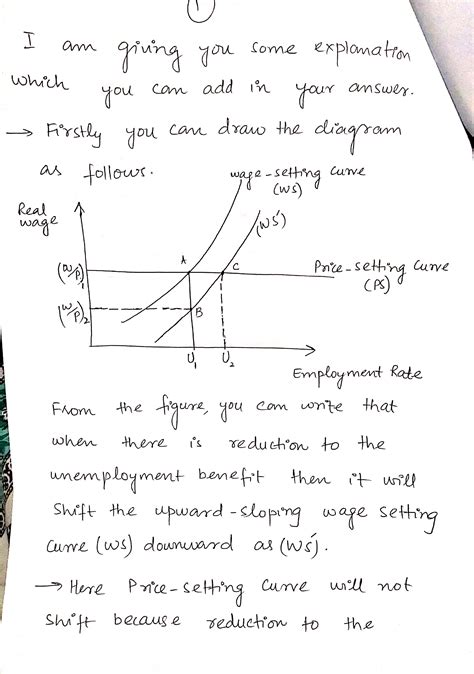 1
I am giving you some explanation
which you can add in your answer.
→ Firstly you can draw the diagram
as follows.
wage-setting curve
(WS)
Real
wage
(WS')
A
C
(W/P)1
Price-setting curve
(PS)
(W/P)2
B
U1
U2
Employment Rate
From the figure, you can write that
when there is reduction to the
unemployment benefit then it will
shift the upward-sloping wage setting
curve (WS) downward as (WS').
→ Here Price-setting curve will not
shift because reduction to the